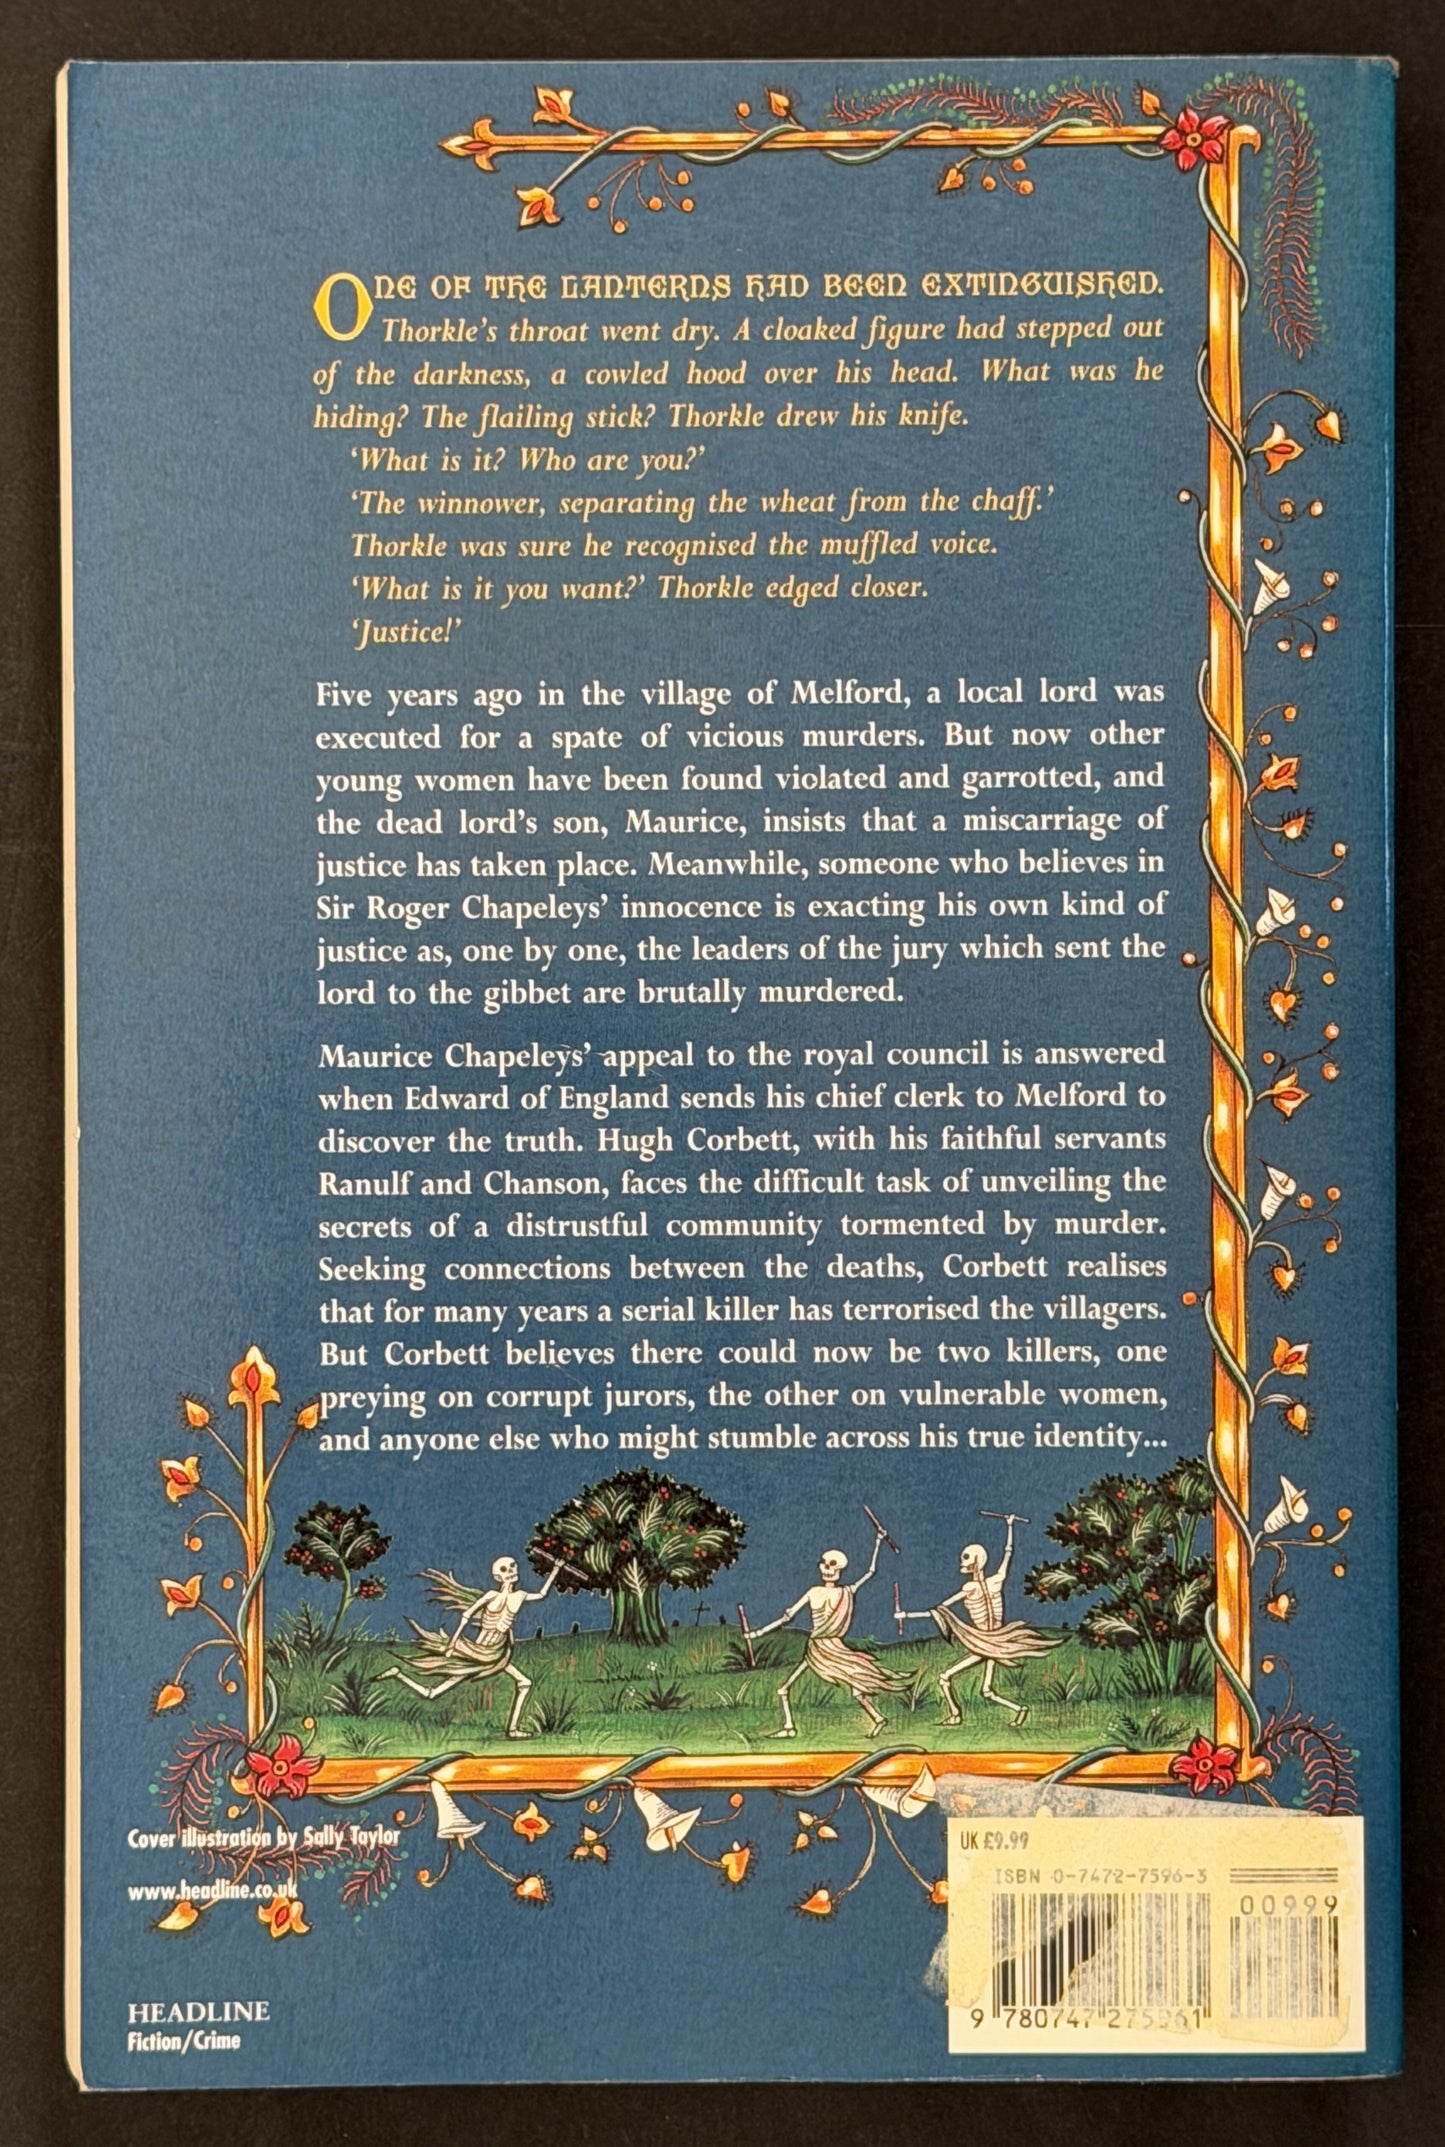 ONE OF THE LANTERNS HAD BEEN EXTINGUISHED.
Thorkle's throat went dry. A cloaked figure had stepped out
of the darkness, a cowled hood over his head. What was he
hiding? The flailing stick? Thorkle drew his knife.
‘What is it? Who are you?’
‘The winnower, separating the wheat from the chaff.’
Thorkle was sure he recognised the muffled voice.
‘What is it you want?’ Thorkle edged closer.
‘Justice!’
Five years ago in the village of Melford, a local lord was
executed for a spate of vicious murders. But now other
young women have been found violated and garrotted, and
the dead lord's son, Maurice, insists that a miscarriage of
justice has taken place. Meanwhile, someone who believes in
Sir Roger Chapeleys' innocence is exacting his own kind of
justice as, one by one, the leaders of the jury which sent the
lord to the gibbet are brutally murdered.
Maurice Chapeleys' appeal to the royal council is answered
when Edward of England sends his chief clerk to Melford to
discover the truth. Hugh Corbett, with his faithful servants
Ranulf and Chanson, faces the difficult task of unveiling the
secrets of a distrustful community tormented by murder.
Seeking connections between the deaths, Corbett realises
that for many years a serial killer has terrorised the villagers.
But Corbett believes there could now be two killers, one
preying on corrupt jurors, the other on vulnerable women,
and anyone else who might stumble across his true identity...
Cover illustration by Sally Taylor
www.headline.co.uk
HEADLINE
Fiction/Crime
UK £9.99
ISBN 0-7472-7596-3
00999
9 780747 275961